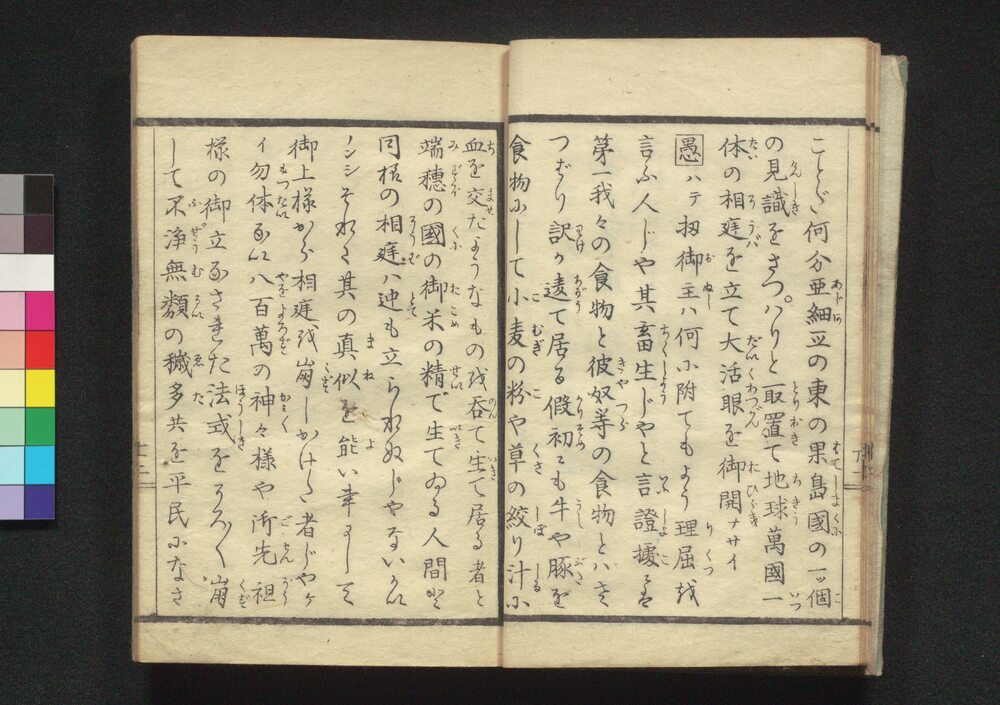 ことゞ何分亜細亜の東の果島國の一ッ個
の見識をさつぱりと取置て地球萬國一
体の相庭を立て大活眼を御開ナサイ
愚ハテ扨御主ハ何に附てもよう理屈を
言ふ人じや其畜生じやと言證據にハ
第一我々の食物と彼奴等の食物とハさ
つぱり訳が違て居る假初にも牛や豚を
食物にして小麦の粉や草の絞り汁に
血を交たようなものを呑て生て居る者と
端穂の國の御米の精で生てゐる人間と
同格の相庭ハ迚も立られぬじやないかい
ノンシそれに其の真似を能い幸にして
御上様から相庭を崩しかけた者じやケ
イ勿体ない八百萬の神々様や御先祖
様の御立なされた法式をそろ〳〵崩
して不浄無類の穢多共を平民になさ